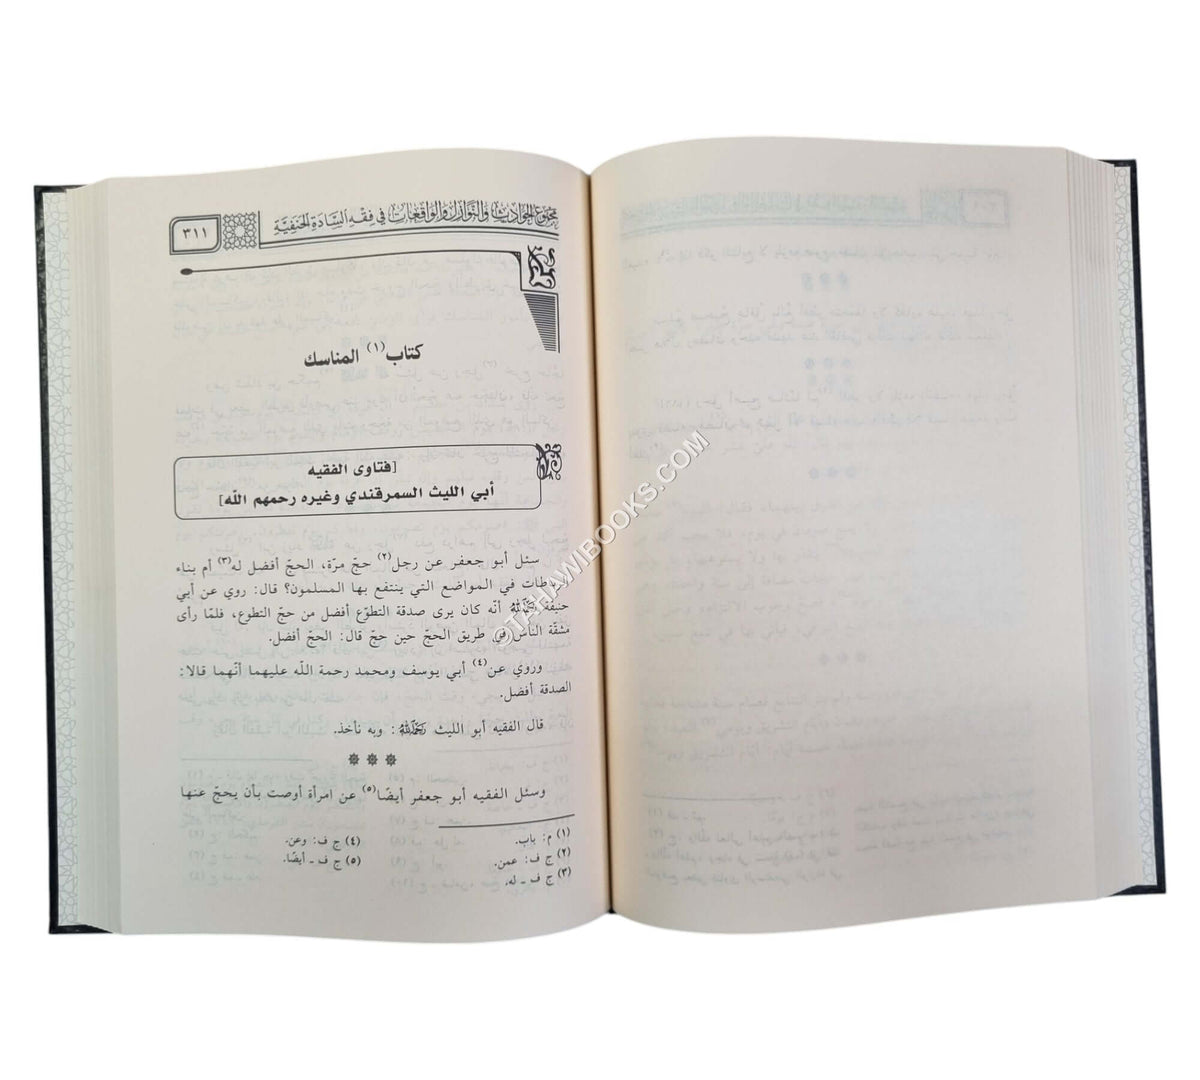 مجموع الحوادث والنوازل والواقعات في فقه السادة الحنفية
٣١١
كتاب(١) المناسك
[فتاوى الفقيه
أبي الليث السمرقندي وغيره رحمهم الله]
سئل أبو جعفر عن رجل(٢) حجّ مرّة، الحجّ أفضل له(٣) أم بناء
في المواضع التي ينتفع بها المسلمون؟ قال: روي عن أبي
حنيفة رَحِمَهُ اللهُ أنّه كان يرى صدقة التطوّع أفضل من حجّ التطوع، فلمّا رأى
مشقّة الناس في طريق الحجّ حين حجّ قال: الحجّ أفضل.
وروي عن(٤) أبي يوسف ومحمد رحمة الله عليهما أنّهما قالا:
الصدقة أفضل.
قال الفقيه أبو الليث رَحِمَهُ اللهُ: وبه نأخذ.
وسئل الفقيه أبو جعفر أيضًا(٥) عن امرأة أوصت بأن يحجّ عنها
(١) م: باب.
(٢) ج ف: عمن.
(٣) ج ف ـ له.
(٤) ج ف: وعن.
(٥) ج ف ـ أيضًا.
©TAHAWIBOOKS.COM